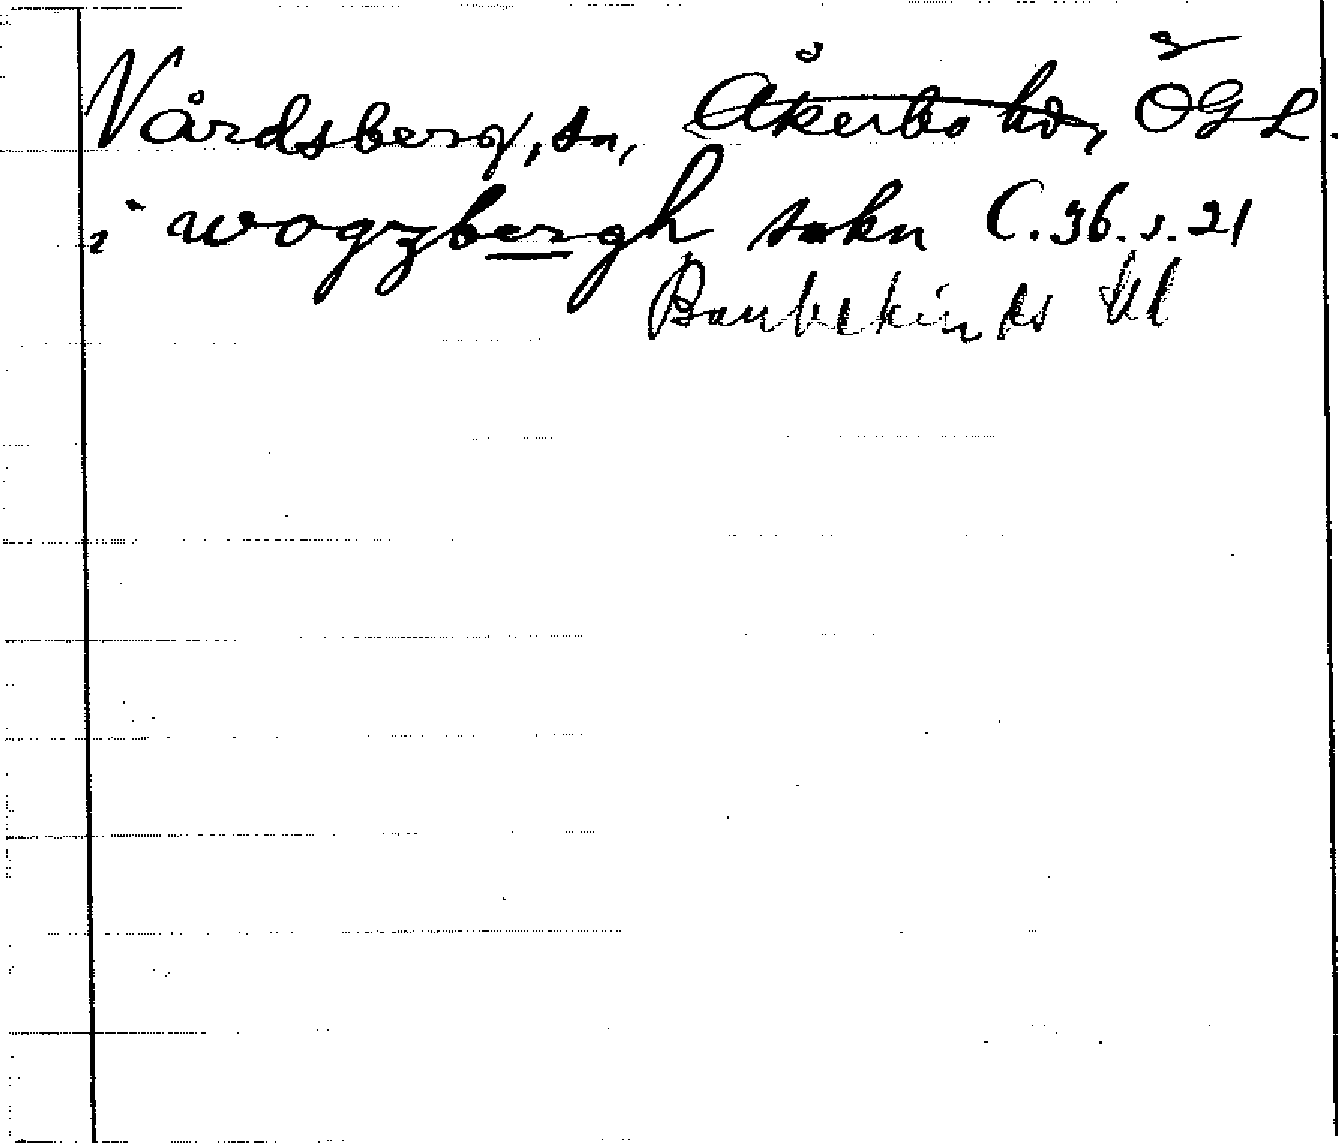 Vårdsberg, sn, Åkerbo hd, ÖGL.
i wogzbergh sokn C.36.s.21
Bankekinds hd